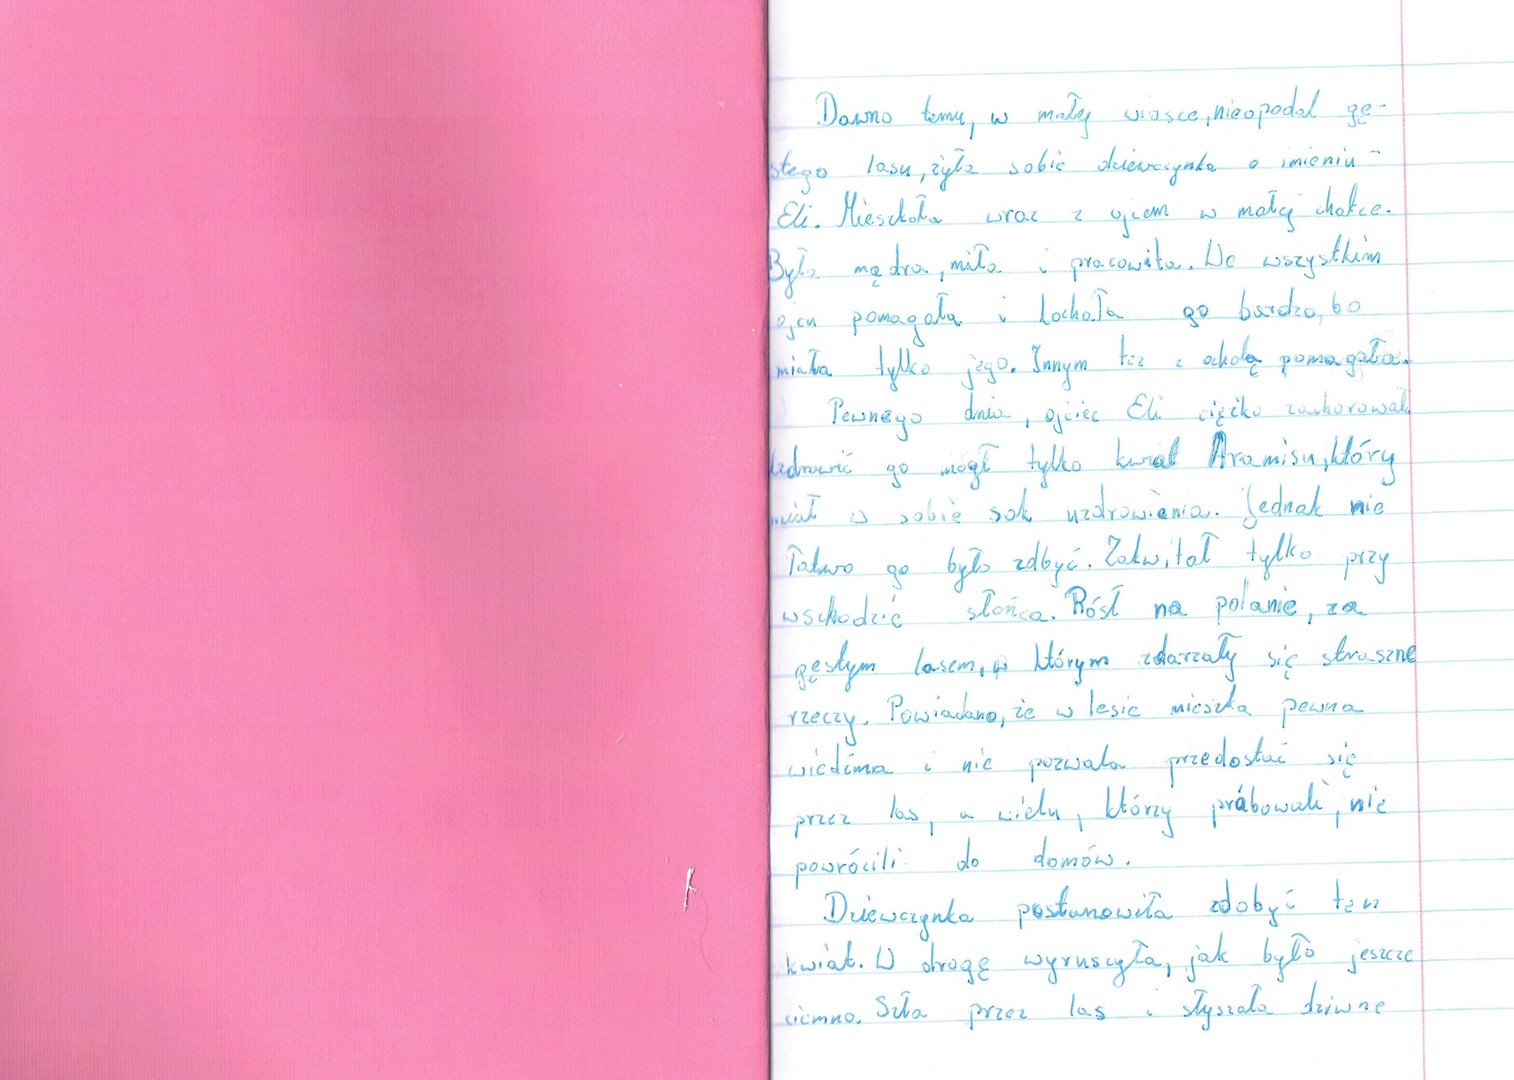 Dawno temu, w małej wiosce, nieopodal gę-
stego lasu, żyła sobie dziewczynka o imieniu -
Eli. Mieszkała wraz z ojcem w małej chatce.
Była mądra, miła i pracowita. We wszystkim
ojcu pomagała i kochała go bardzo, bo
miała tylko jego. Innym też z ochotą pomagała.
Pewnego dnia, ojciec Eli ciężko zachorował
Uzdrowić go mógł tylko kwiat Aramisu, który
miał w sobie sok uzdrowienia. Jednak nie
łatwo go było zdbyć. Zakwitał tylko przy
wschodzie słońca. Rósł na polanie, za
gęstym lasem, w którym zdarzały się straszne
rzeczy. Powiadano, że w lesie mieszka pewna
wiedźma i nie pozwala przedostać się
przez las, a wielu, którzy próbowali, nie
powrócili do domów.
Dziewczynka postanowiła zdobyć ten
kwiat. W drogę wyruszyła, jak było jeszcze
ciemno. Szła przez las i słyszała dziwne